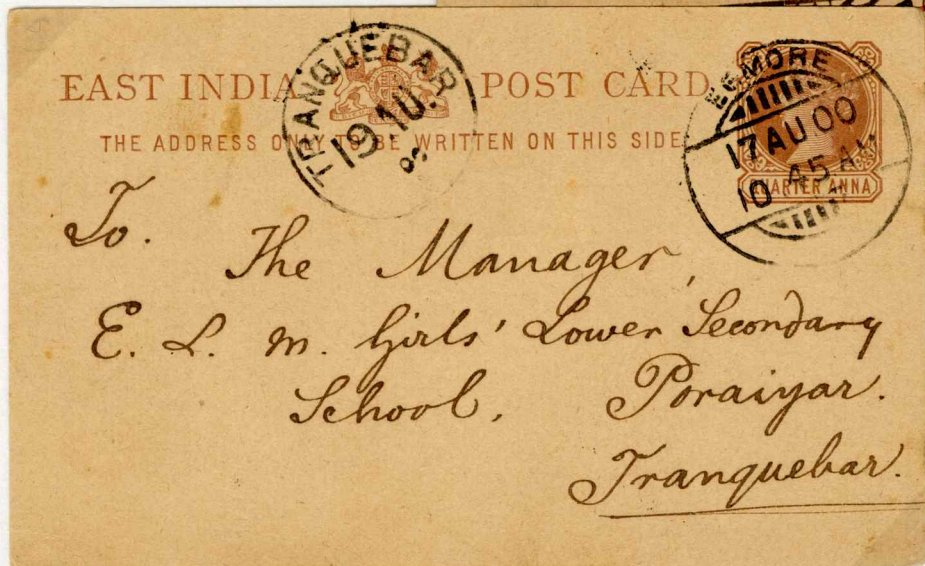 EAST INDIA POST CARD
THE ADDRESS ONLY TO BE WRITTEN ON THIS SIDE
TRANQUEBAR
19 AU
EGMORE
17 AU 00
10 45 AM
QUARTER ANNA
To.
The Manager,
E. L. M. Girls' Lower Secondary
School, Poraiyar.
Tranquebar.